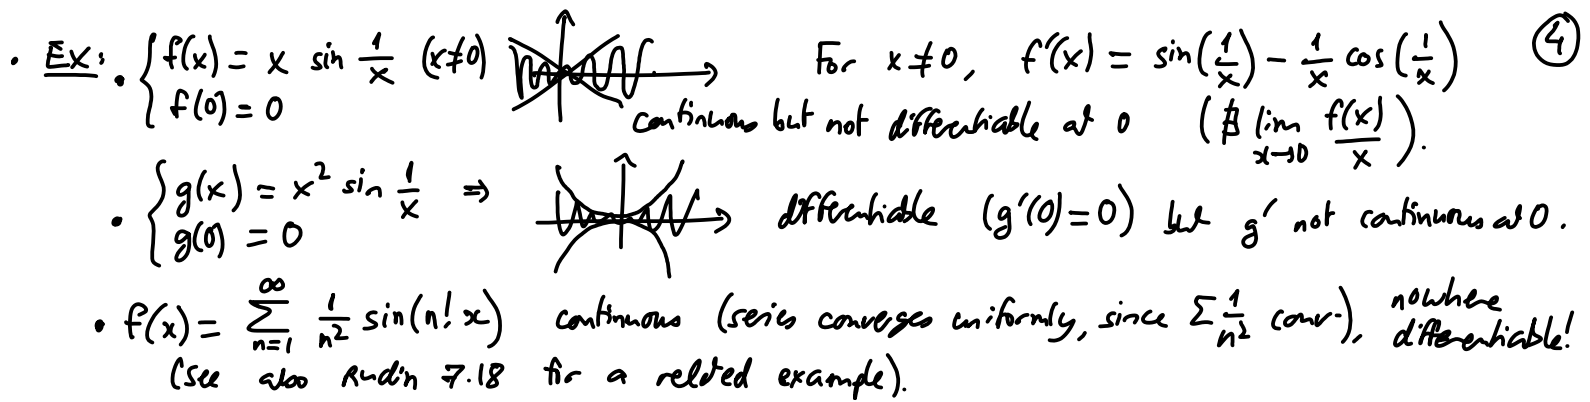 • Ex: • { f(x) = x sin 1/x (x≠0) For x ≠ 0, f'(x) = sin(1/x) - 1/x cos(1/x) ④
f(0) = 0 continuous but not differentiable at 0 (∄ lim x→0 f(x)/x).
• { g(x) = x² sin 1/x ⇒ differentiable (g'(0)=0) but g' not continuous at 0.
g(0) = 0
• f(x) = ∑ n=1 ∞ 1/n² sin(n! x) continuous (series converges uniformly, since ∑ 1/n² conv.), nowhere differentiable!
(see also Rudin 7.18 for a related example).